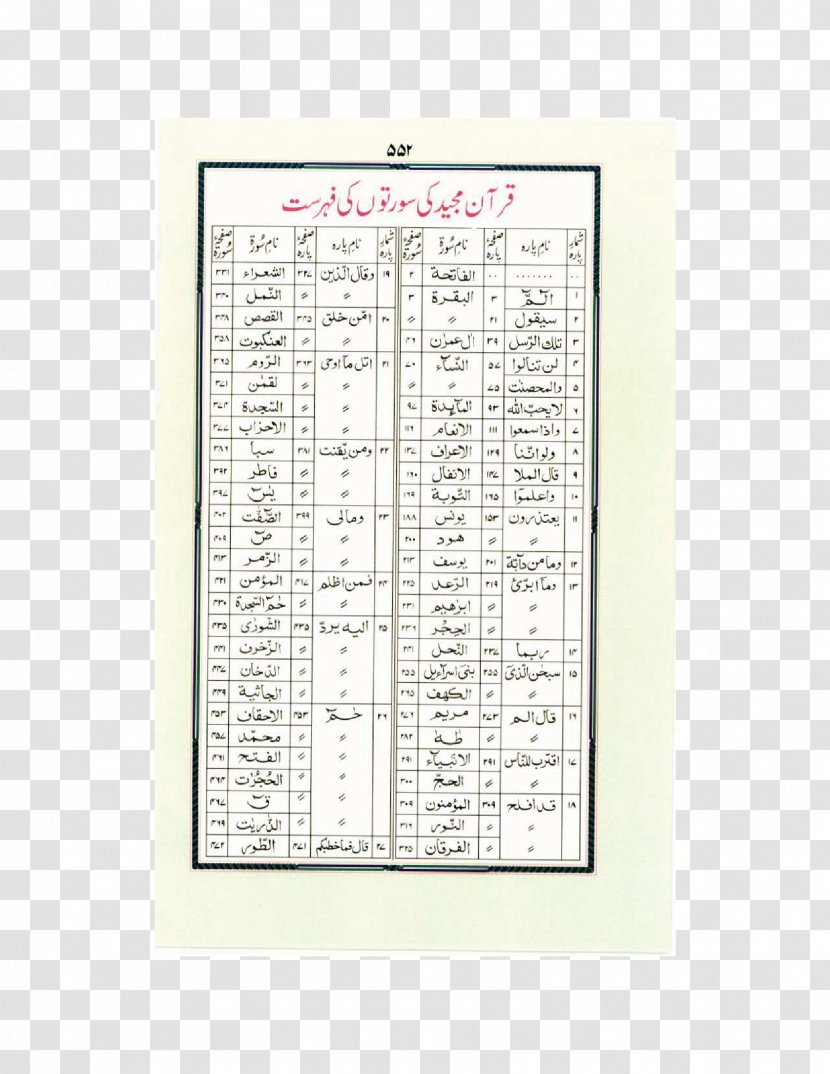 ۵۵۲
قرآن مجید کی سورتوں کی فہرست
شمار پارہ نام پارہ صفحۂ پارہ نام سُورۃ صفحۂ سُورۃ
۰۰ ........ ۰۰ الفاتحة ۲
۱ الٓمّٓ ۳ البقرة ۳
۲ سیقول ۲۱ 〃 〃
۳ تلك الرّسل ۳۹ اٰل عمرٰن ۴۶
۴ لن تنالوا ۵۷ النّسآء ۷۰
۵ والمحصنٰت ۷۵ 〃 〃
۶ لایحبّ الله ۹۳ المآىِٕدة ۹۷
۷ واذا سمعوا ۱۱۱ الانعام ۱۱۶
۸ ولواننّا ۱۲۹ الاعراف ۱۳۷
۹ قال الملا ۱۴۷ الانفال ۱۶۰
۱۰ واعلموٓا ۱۶۵ التّوبة ۱۶۹
۱۱ یعتذرون ۱۵۳ یونس ۱۸۸
〃 〃 هود ۲۰۰
۱۲ ومامن دآبّة ۲۰۱ یوسف ۲۱۳
۱۳ ومآ ابرّئ ۲۱۹ الرّعد ۲۲۵
〃 〃 ابرٰهیم ۲۳۱
〃 〃 الحِجْر ۲۳۶
۱۴ ربما ۲۳۷ النّحل ۲۴۱
۱۵ سبحٰن الّذیٓ ۲۵۵ بنیٓ اسرآءیل ۲۵۵
〃 〃 الکهف ۲۶۵
۱۶ قال الم ۲۷۳ مریم ۲۷۶
〃 〃 طٰهٰ ۲۸۲
۱۷ اقترب للنّاس ۲۹۱ الانبیآء ۲۹۱
〃 〃 الحجّ ۳۰۰
۱۸ قدافلح ۳۰۹ المؤمنون ۳۰۹
〃 〃 النّور ۳۱۶
〃 〃 الفرقان ۳۲۵
شمار پارہ نام پارہ صفحۂ پارہ نام سُورۃ صفحۂ سُورۃ
۱۹ وقال الّذین ۳۲۷ الشعراء ۳۳۱
〃 〃 النّمل ۳۴۰
۲۰ امّن خلق ۳۴۵ القصص ۳۴۸
〃 〃 العنکبوت ۳۵۸
۲۱ اتل مآاوحی ۳۶۳ الرّوم ۳۶۵
〃 〃 لقمٰن ۳۷۱
〃 〃 السّجدة ۳۷۴
〃 〃 الاحزاب ۳۷۷
۲۲ ومن یّقنت ۳۸۱ سبا ۳۸۶
〃 〃 فاطر ۳۹۲
〃 〃 یٰسٓ ۳۹۷
۲۳ ومالی ۳۹۹ الصّٰٓفّٰت ۴۰۲
〃 〃 صٓ ۴۰۹
〃 〃 الزّمر ۴۱۳
۲۴ فمن اظلم ۴۱۷ المؤمن ۴۲۱
〃 〃 حٰمٓ السّجدة ۴۳۰
۲۵ الیه یردّ ۴۳۵ الشّورٰی ۴۳۵
〃 〃 الزّخرف ۴۴۱
〃 〃 الدّخان ۴۴۷
〃 〃 الجاثیة ۴۴۹
۲۶ حٰمٓ ۴۵۳ الاحقاف ۴۵۳
〃 〃 محمّد ۴۵۷
〃 〃 الفتح ۴۶۱
〃 〃 الحُجُرٰت ۴۶۴
〃 〃 قٓ ۴۶۷
〃 〃 الذّٰریٰت ۴۶۹
۲۷ قال فماخطبکم ۴۷۱ الطّور ۴۷۲